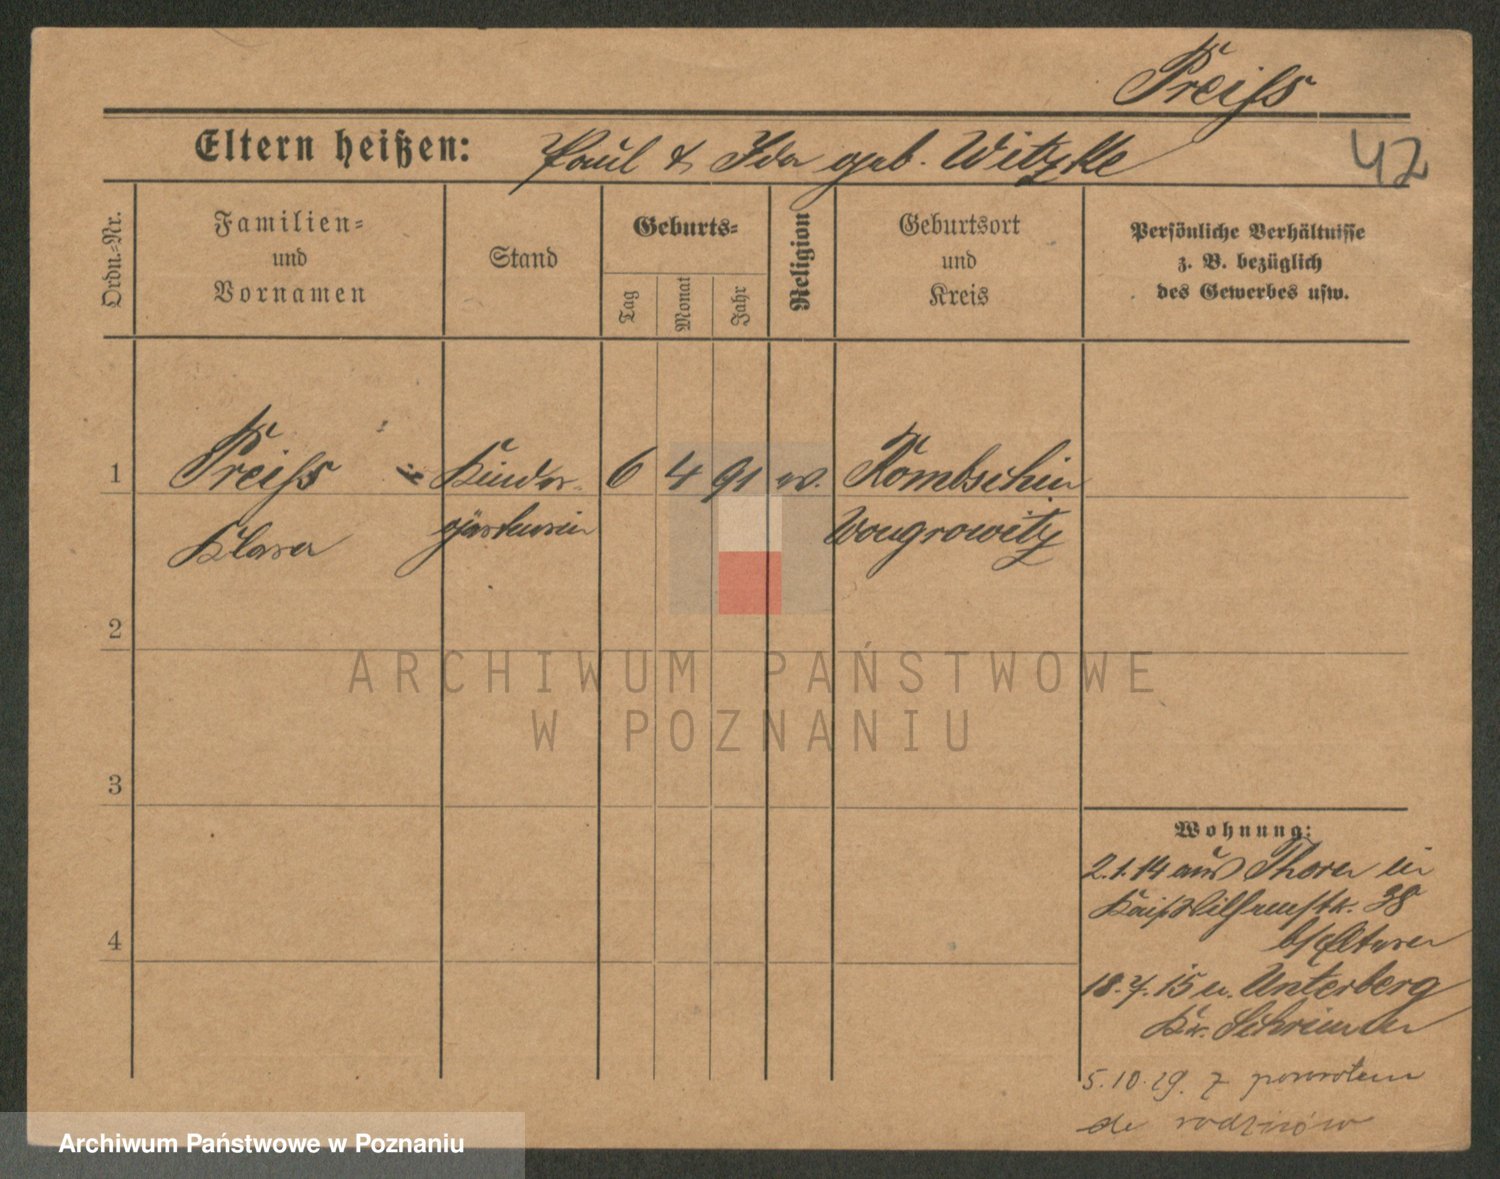 Preiss
Eltern heißen: Paul & Ida geb. Witzke
42
Ordn.-Nr.
Familien-
und
Vornamen
Stand
Geburts-
Tag
Monat
Jahr
Religion
Geburtsort
und
Kreis
Persönliche Verhältnisse
z. B. bezüglich
des Gewerbes usw.
1
Preiss Kinder- 6 4 91 ev. Kombschin
Klara gärtnerin Wongrowitz
2
3
4
Wohnung:
2.1.14 aus Thorn in
Kais. Wilhelmstr. 38
b/Eltern
18.7.15 n. Unterberg
Kr. Schrimm
5.10.19. z powrotem
do rodziców
ARCHIWUM PAŃSTWOWE
W POZNANIU
Archiwum Państwowe w Poznaniu